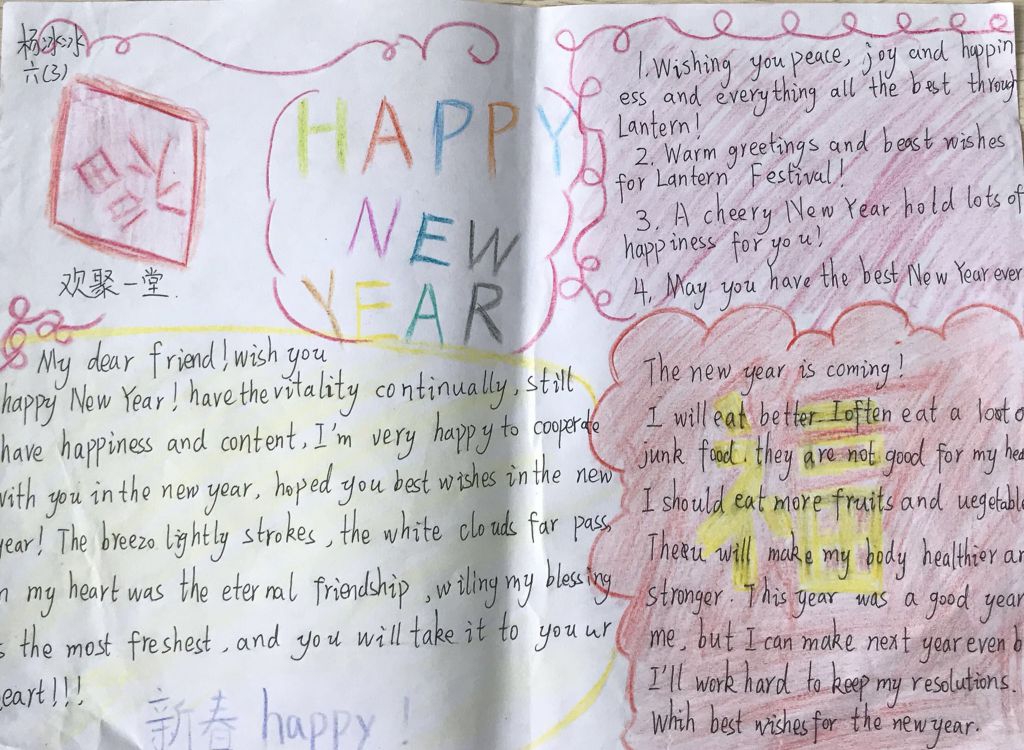 杨冰冰
六(3)
福
欢聚一堂.
HAPPY
NEW
YEAR
My dear friend! wish you
happy New Year! have the vitality continually, still
have happiness and content, I'm very happy to cooperate
with you in the new year, hoped you best wishes in the new
year! The breezo lightly strokes, the white clouds far pass,
n my heart was the eternal friendship, wiling my blessing
s the most freshest, and you will take it to you ur
eart!!!
新春 happy!
1. Wishing you peace, joy and happin
ess and everything all the best throug
Lantern!
2. Warm greetings and beast wishes
for Lantern Festival!
3. A cheery New Year hold lots of
happiness for you!
4. May you have the best New Year ever
The new year is coming!
I will eat better I often eat a loot o
junk food. they are not good for my hea
I should eat more fruits and uegetable
Theeu will make my body healthier an
stronger. This year was a good year
me, but I can make next year even b
I'll work hard to keep my resolutions.
Whih best wishes for the new year.
福